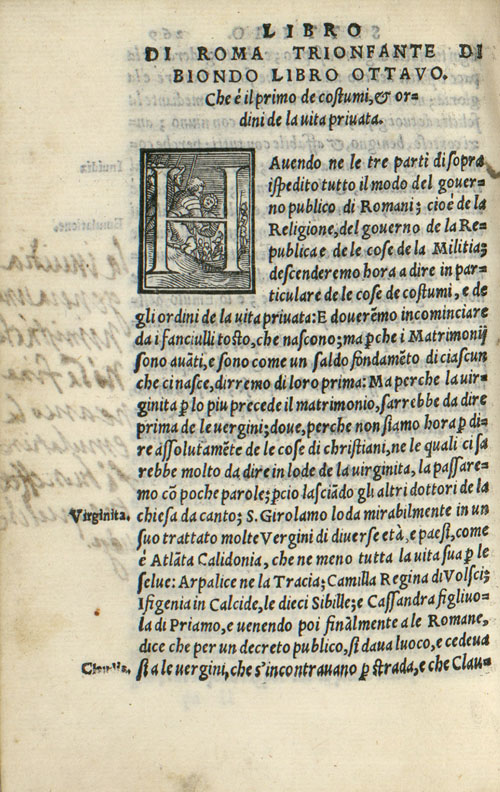 LIBRO
DI ROMA TRIONFANTE DI
BIONDO LIBRO OTTAVO.
Che é il primo de costumi, & or=
dini de la uita priuata.
HAuendo ne le tre parti di sopra
ispedito tutto il modo del gouer=
no publico di Romani; cioè de la
Religione, del gouerno de la Re=
publica e de le cose de la Militia;
descenderemo hora a dire in par=
ticulare de le cose de costumi, e de
gli ordini de la uita priuata: E douerēmo incominciare
da i fanciulli tosto, che nascono; ma ꝑche i Matrimonij
sono auāti, e sono come un saldo fondamēto di ciascun
che ci nasce, dirremo di loro prima: Ma perche la uir=
ginita ꝑ lo piu precede il matrimonio, sarrebbe da dire
prima de le uergini; doue, perche non siamo hora ꝑ di=
re assolutamēte de le cose di christiani, ne le quali ci sa
rebbe molto da dire in lode de la uirginita, la passare=
mo cō poche parole; ꝑcio lasciādo gli altri dottori de la
Virginita. chiesa da canto; S. Girolamo loda mirabilmente in un
suo trattato molte Vergini di diuerse età, e paesi, come
é Atlāta Calidonia, che ne meno tutta la uita sua ꝑ le
selue: Arpalice ne la Tracia; Camilla Regina di Volsci;
Ifigenia in Calcide, le dieci Sibille; e Cassandra figliuo=
la di Priamo, e uenendo poi finalmente a le Romane,
dice che per un decreto publico, si daua luoco, e cedeua
si a le uergini, che s'incontrauano ꝑ strada, e che Clau=